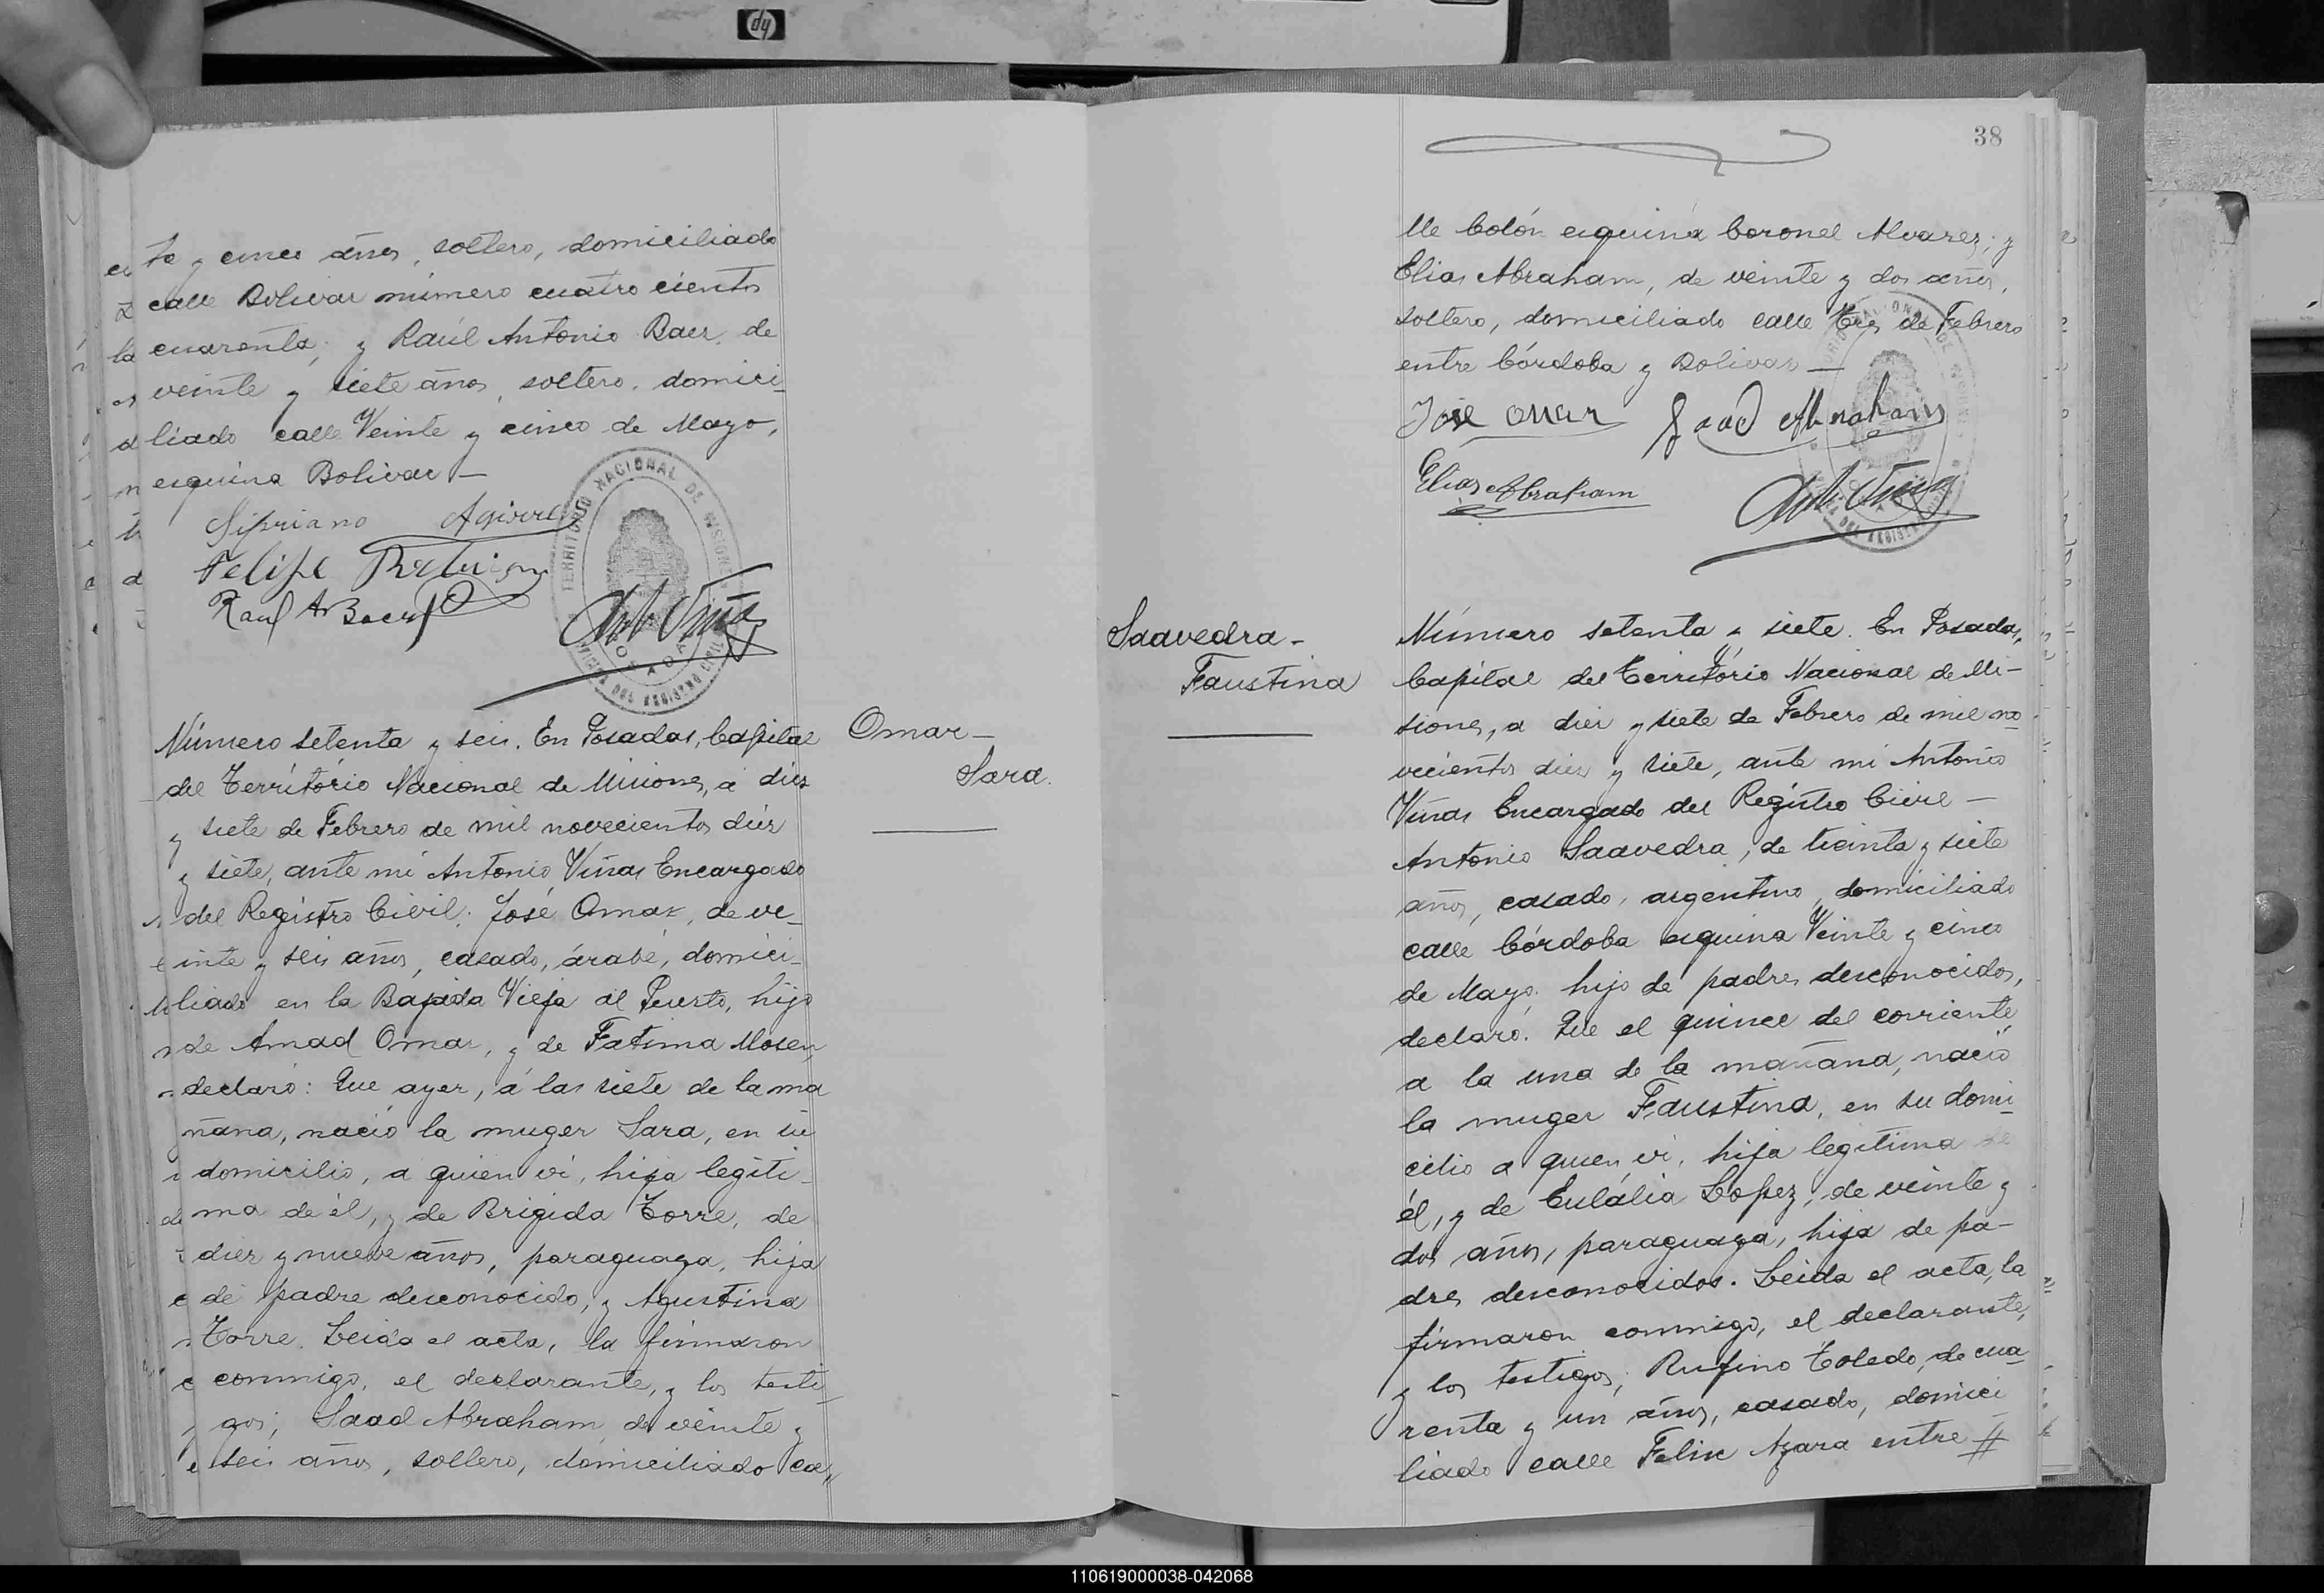 hp
te y cinco años, soltero, domiciliado
calle Bolivar número cuatro cientos
cuarenta; y Raúl Antonio Baer, de
veinte y siete años, soltero, domici-
liado calle Veinte y cinco de Mayo,
esquina Bolivar —
Sipriano Agirre
Felipe
Raul A Baer
TERRITORIO NACIONAL DE MISIONES
Número setenta y seis. En Posadas, Capital
del Território Nacional de Misiones, a diez
y siete de Febrero de mil novecientos diez
y siete, ante mi Antonio Viñas Encargado
del Registro Civil. José Omar, de ve-
inte y seis años, casado, árabe, domici-
liado en la Bajada Vieja al Puerto, hijo
de Amad Omar, y de Fatima Mosen,
declaró: Que ayer, á las siete de la ma
ñana, nació la muger Sara, en su
domicilio, a quien vi, hija legiti-
ma de él, y de Brigida Torre, de
diez y nueve años, paraguaya, hija
de padre desconocido, y Agustina
Torre. Leida el acta, la firmaron
conmigo, el declarante, y los testi-
gos; Saad Abraham, de veinte y
seis años, soltero, domiciliado ca,,
Omar-
Sara.
38
lle Colón esquina Coronel Alvarez; y
Elias Abraham, de veinte y dos años,
soltero, domiciliado calle Tres de Febrero
entre Córdoba y Bolivar —
José Omar Saad Abraham
Elias Abraham
Saavedra-
Faustina
Número setenta y siete. En Posadas,
Capital del Território Nacional de Mi-
siones, a diez y siete de Febrero de mil no-
vecientos diez y siete, ante mi Antonio
Viñas Encargado del Registro Civil —
Antonio Saavedra, de treinta y siete
años, casado, argentino, domiciliado
calle Córdoba esquina Veinte y cinco
de Mayo, hijo de padres desconocidos,
declaró: Que el quince del corriente
a la una de la mañana, nació
la muger Faustina, en su domi-
cilio a quien vi, hija legitima de
él, y de Eulália Lopez, de veinte y
dos años, paraguaya, hija de pa-
dres desconocidos. Leida el acta, la
firmaron conmigo, el declarante,
y los testigos; Rufino Toledo, de cua-
renta y un años, casado, domici
liado calle Felix Azara entre #
110619000038-042068